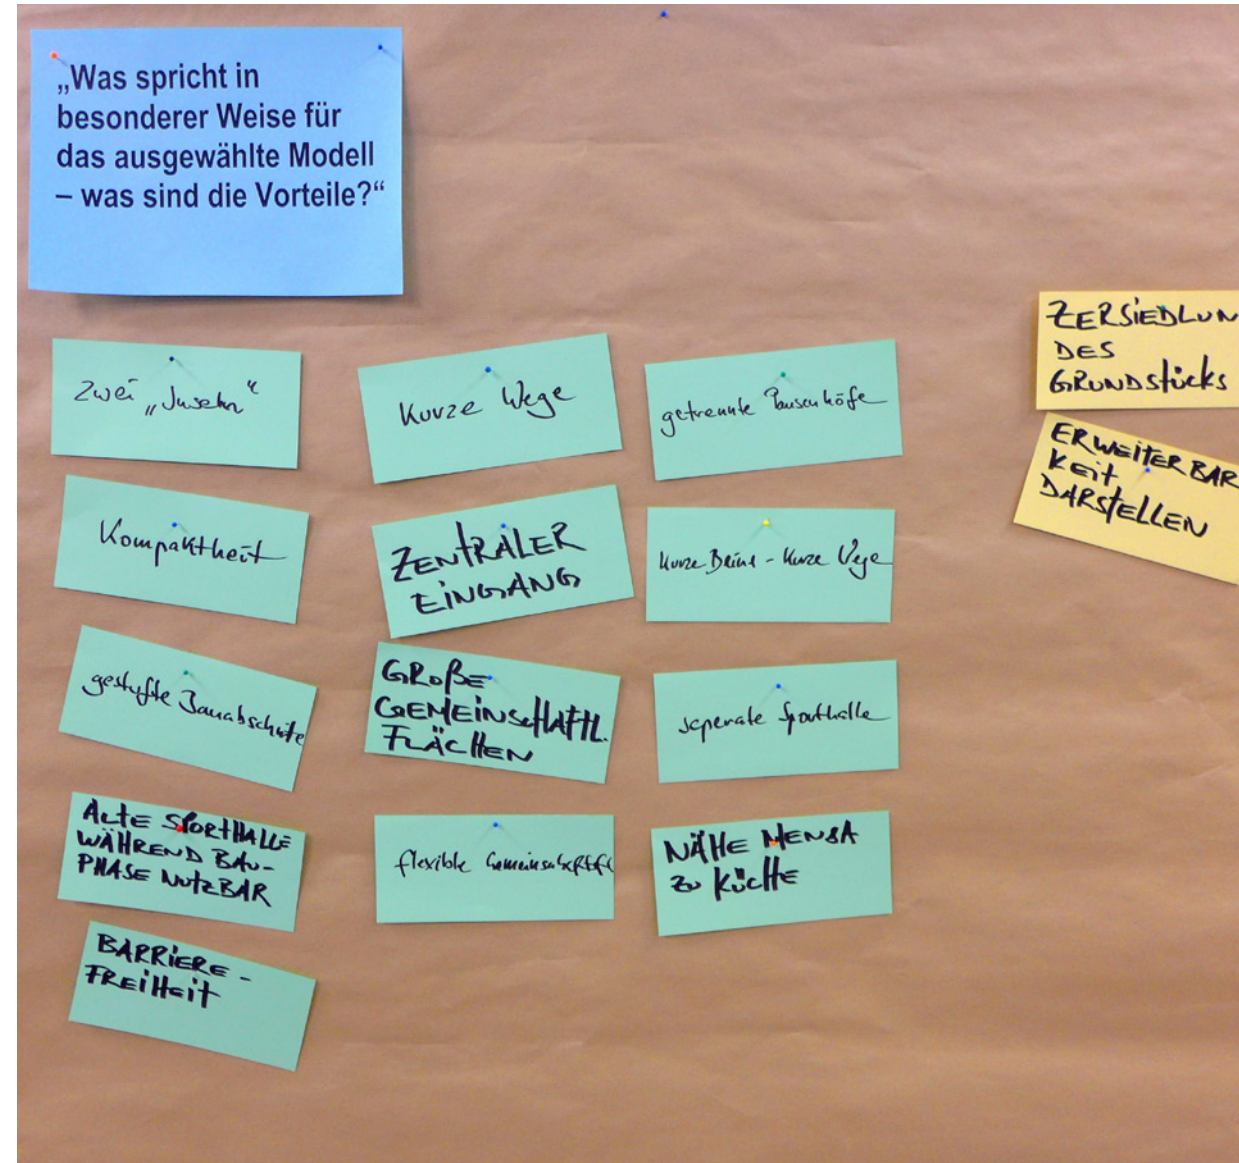 „Was spricht in
besonderer Weise für
das ausgewählte Modell
– was sind die Vorteile?“
Zwei „Inseln“
Kompaktheit
gestufte Bauabschnitte
ALTE SPORTHALLE
WÄHREND BAU-
PHASE NUTZBAR
BARRIERE-
FREIHEIT
Kurze Wege
ZENTRALER
EINGANG
GROßE
GEMEINSCHAFTL.
FLÄCHEN
flexible
getrennte Pausenhöfe
Kurze Beine - Kurze Wege
seperate Sporthalle
NÄHE MENSA
zu KÜCHE
ZERSIEDLUN
DES
GRUNDSTÜCKS
ERWEITERBAR
KEIT
DARSTELLEN